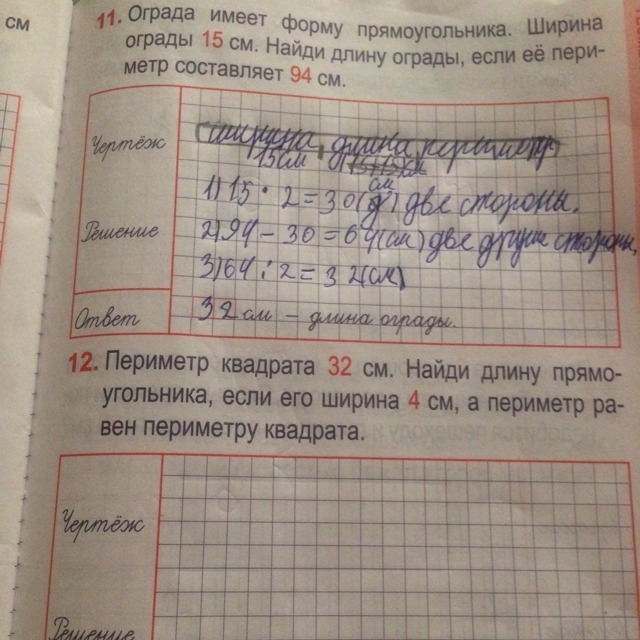 см
11. Ограда имеет форму прямоугольника. Ширина
ограды 15 см. Найди длину ограды, если её пери-
метр составляет 94 см.
Чертёж
ширина, длина, периметр
15см
см
1) 15 · 2 = 30 (д) две стороны.
Решение
2) 94 – 30 = 64 (см) две другие стороны,
3) 64 : 2 = 32 (см)
Ответ
32 см – длина ограды.
12. Периметр квадрата 32 см. Найди длину прямо-
угольника, если его ширина 4 см, а периметр ра-
вен периметру квадрата.
Чертёж
Решение